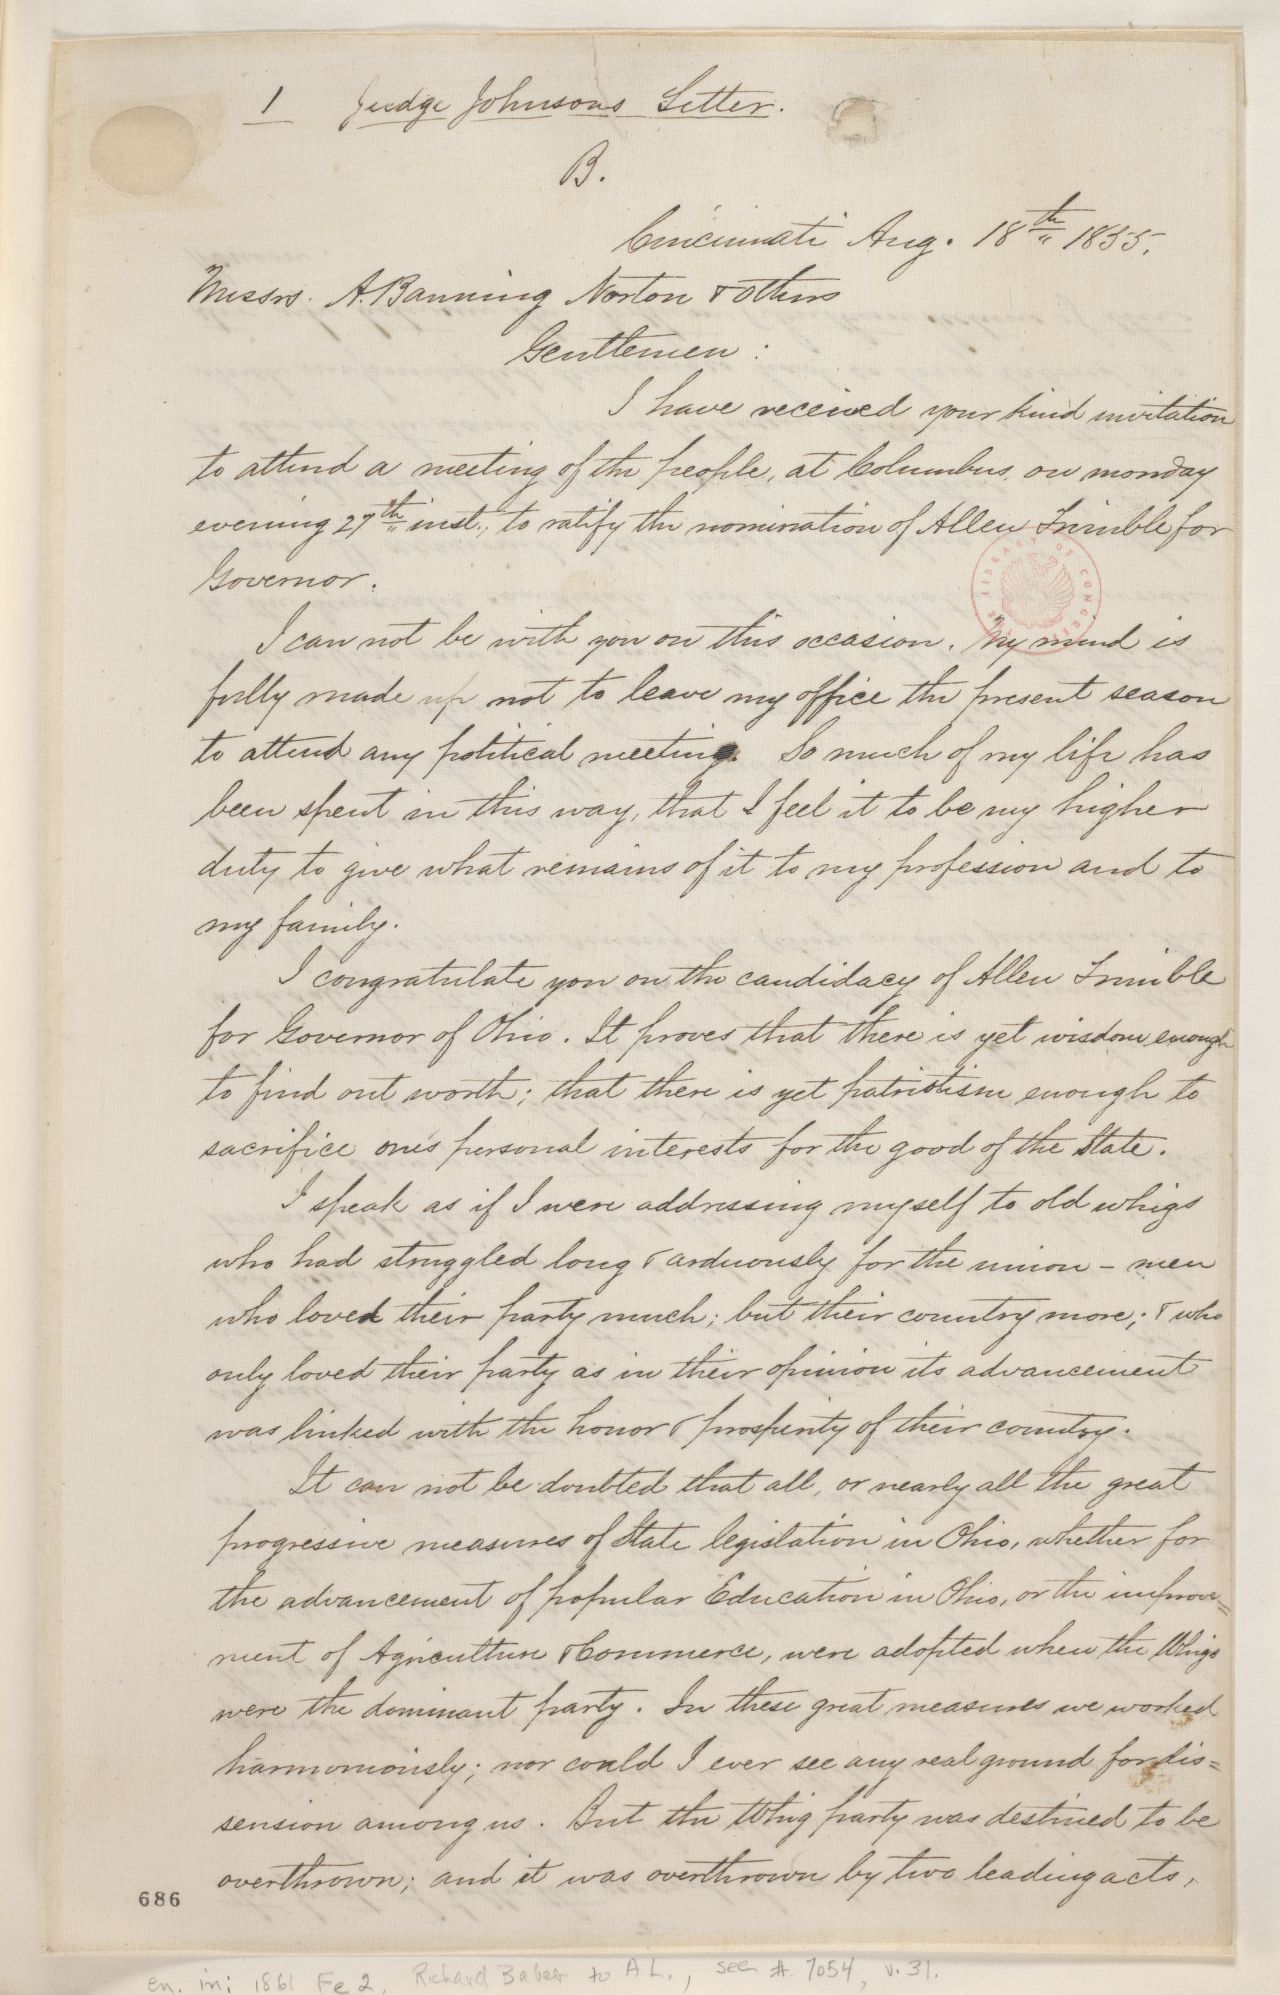 1 Judge Johnsons Letter.
B.
Cincinnati Aug. 18th 1855.
Messrs. A. Banning Norton & others
Gentlemen:
I have received your kind invitation
to attend a meeting of the people, at Columbus, on monday
evening 27th inst., to ratify the nomination of Allen Trimble for
Governor.
LIBRARY OF CONGRESS
I can not be with you on this occasion. My mind is
fully made up not to leave my office the present season
to attend any political meeting. So much of my life has
been spent in this way, that I feel it to be my higher
duty to give what remains of it to my profession and to
my family.
I congratulate you on the candidacy of Allen Trimble
for Governor of Ohio. It proves that there is yet wisdom enough
to find out worth; that there is yet patriotism enough to
sacrifice one's personal interests for the good of the State.
I speak as if I were addressing myself to old whigs
who had struggled long & arduously for the union - men
who loved their party much; but their country more; & who
only loved their party as in their opinion its advancement
was linked with the honor & prosperity of their country.
It can not be doubted that all, or nearly all the great
progressive measures of State legislation in Ohio, whether for
the advancement of popular Education in Ohio, or the improve=
ment of Agriculture & Commerce, were adopted when the Whigs
were the dominant party. In these great measures we worked
harmoniously; nor could I ever see any real ground for dis=
sension among us. But the Whig party was destined to be
overthrown; and it was overthrown by two leading acts,
686
en. in: 1861 Fe 2, Richard Baber to A L., see # 7054, v. 31.